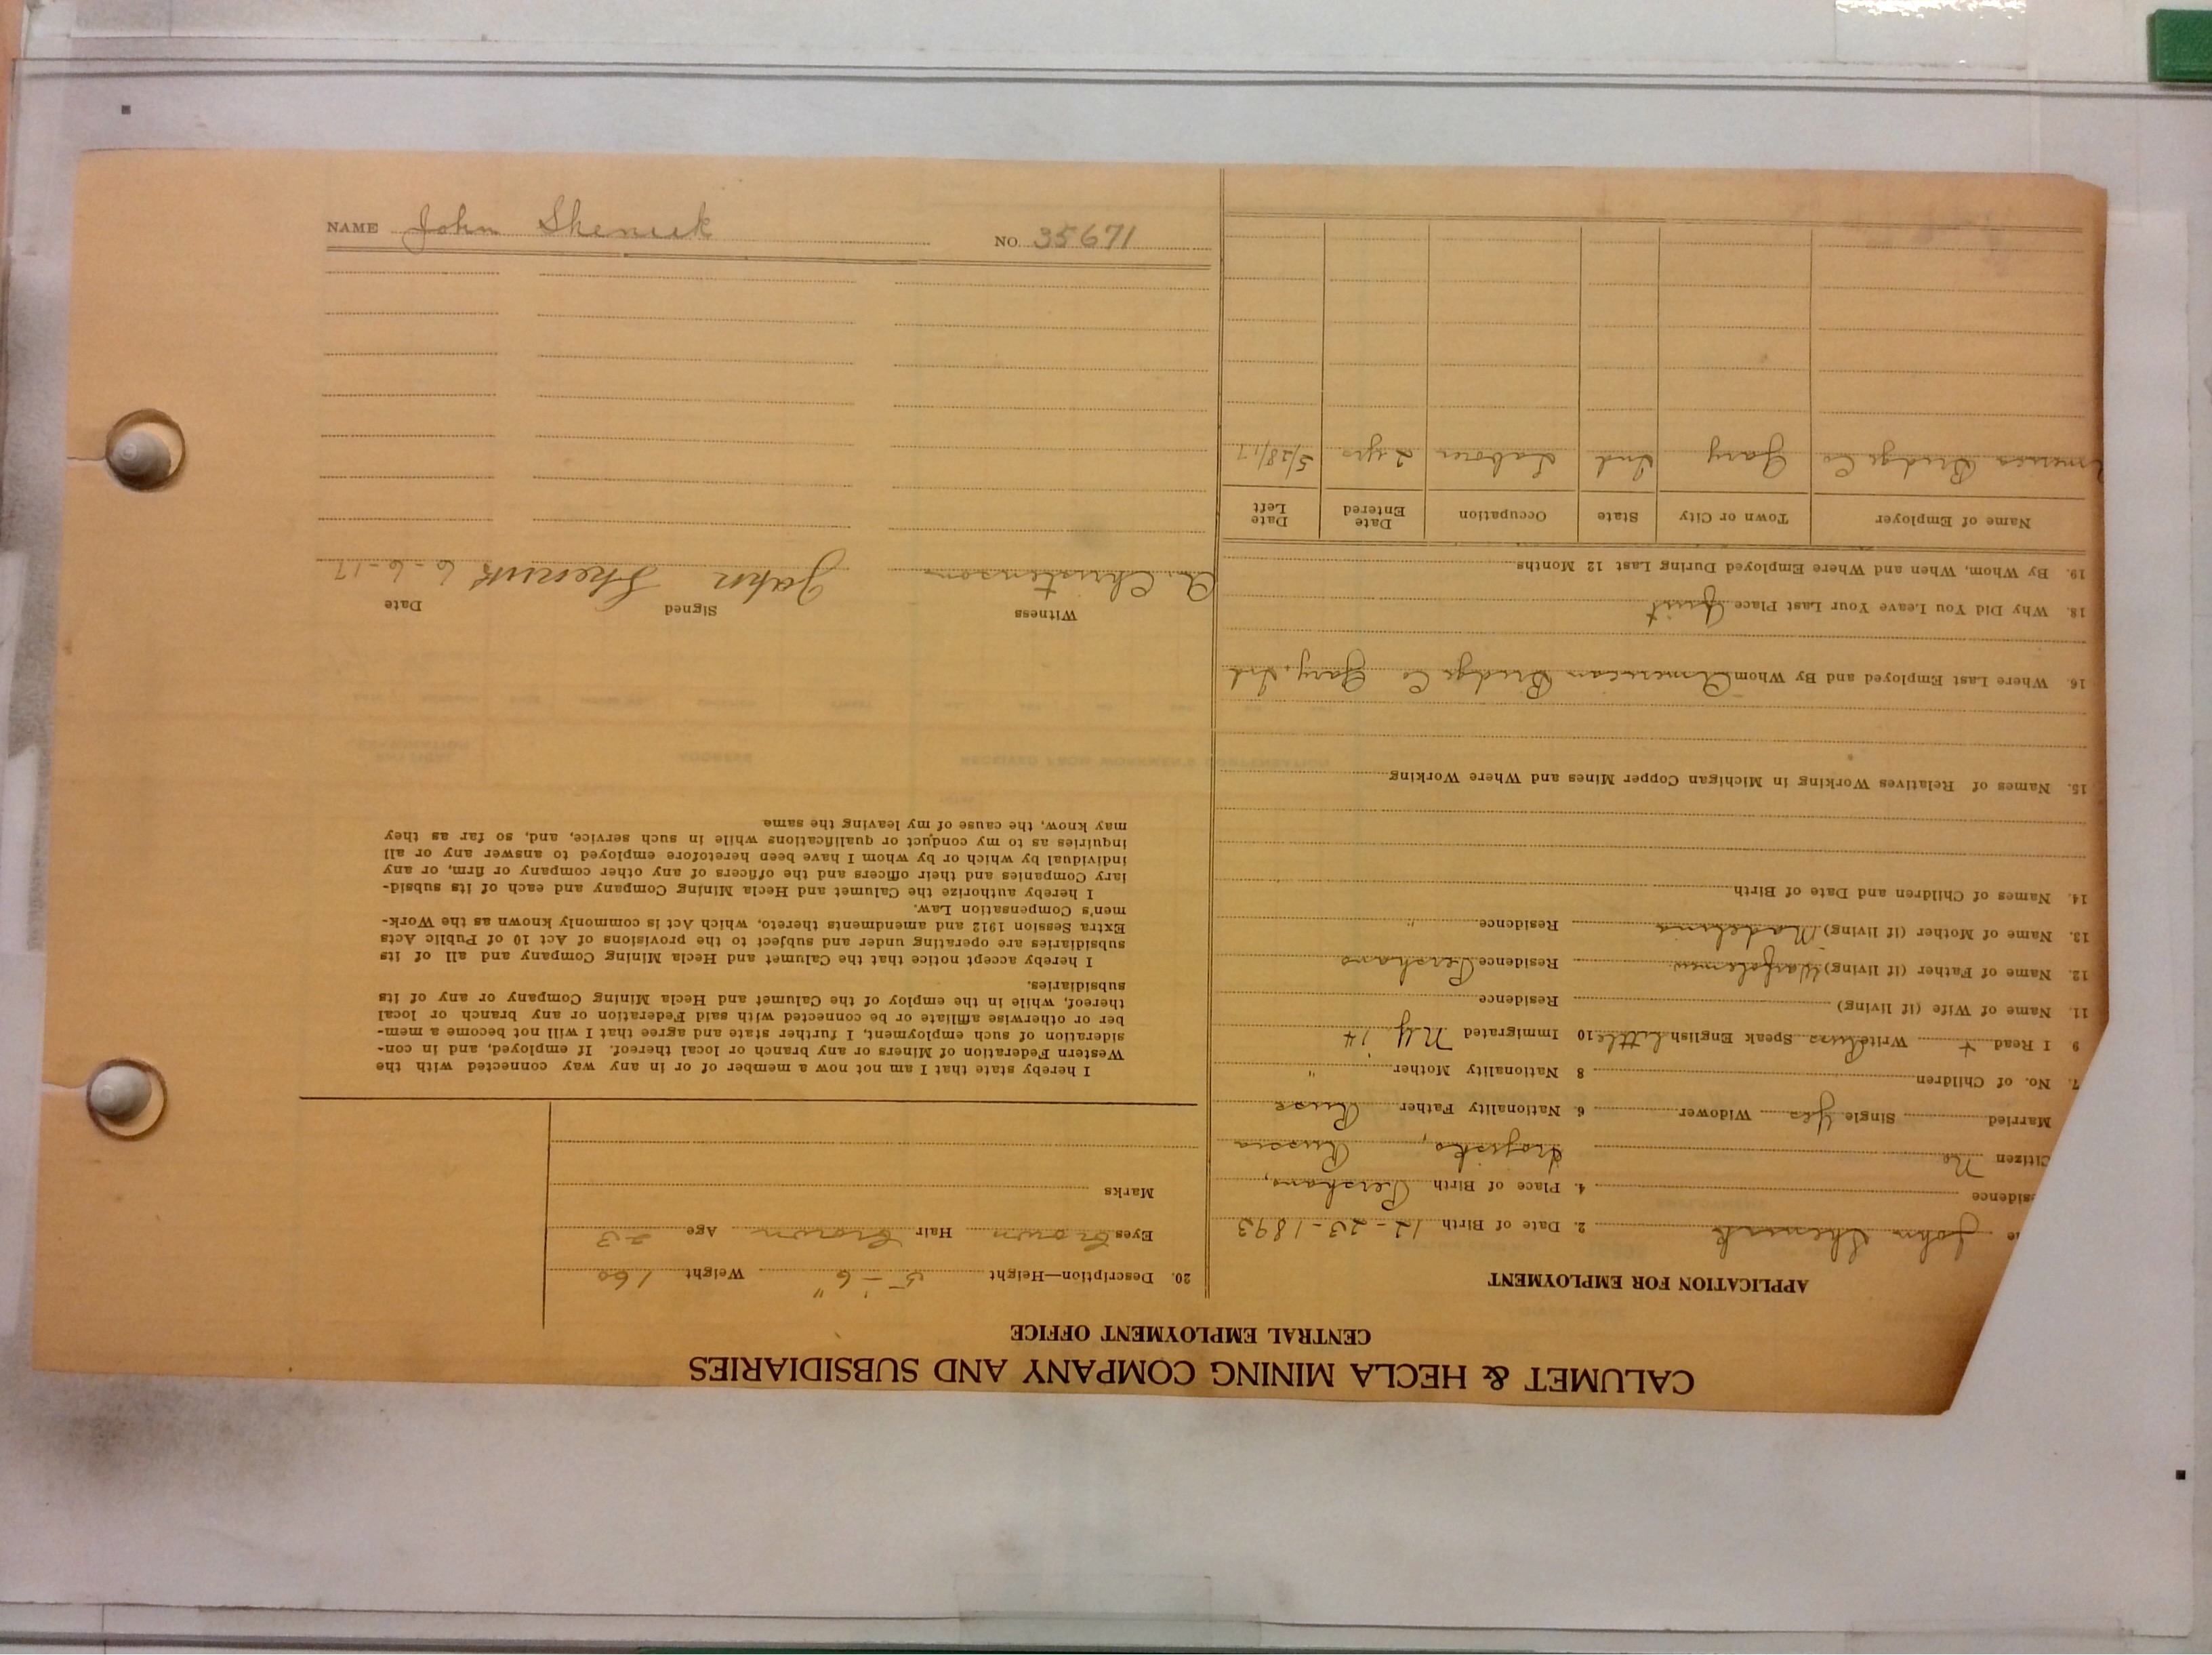 NAME John Sheniek NO. 35671
CALUMET & HECLA MINING COMPANY AND SUBSIDIARIES
CENTRAL EMPLOYMENT OFFICE
APPLICATION FOR EMPLOYMENT
John Sheniek 2. Date of Birth 12-23-1893
Residence 4. Place of Birth
Citizen No Russia
Married Single Yes Widower 6. Nationality Father Russ
7. No. of Children 8 Nationality Mother "
9 I Read + Write Russ Speak English Little 10 Immigrated NY 14
11. Name of Wife (if living) Residence
12. Name of Father (if living) Residence
13. Name of Mother (if living) Residence "
14. Names of Children and Date of Birth
15. Names of Relatives Working in Michigan Copper Mines and Where Working
16. Where Last Employed and By Whom American Bridge Co Gary, Ind
18. Why Did You Leave Your Last Place Quit
19. By Whom, When and Where Employed During Last 12 Months
Name of Employer Town or City State Occupation Date Entered Date Left
America Bridge Co Gary Ind Laborer 2 yrs 5/28/17
20. Description—Height 5'-6" Weight 160
Eyes brown Hair brown Age 23
Marks
I hereby state that I am not now a member of or in any way connected with the
Western Federation of Miners or any branch or local thereof. If employed, and in con-
sideration of such employment, I further state and agree that I will not become a mem-
ber or otherwise affiliate or be connected with said Federation or any branch or local
thereof, while in the employ of the Calumet and Hecla Mining Company or any of its
subsidiaries.
I hereby accept notice that the Calumet and Hecla Mining Company and all of its
subsidiaries are operating under and subject to the provisions of Act 10 of Public Acts
Extra Session 1912 and amendments thereto, which Act is commonly known as the Work-
men's Compensation Law.
I hereby authorize the Calumet and Hecla Mining Company and each of its subsid-
iary Companies and their officers and the officers of any other company or firm, or any
individual by which or by whom I have been heretofore employed to answer any or all
inquiries as to my conduct or qualifications while in such service, and, so far as they
may know, the cause of my leaving the same.
Witness Signed Date
A. Christenson John Sheniek 6-6-17